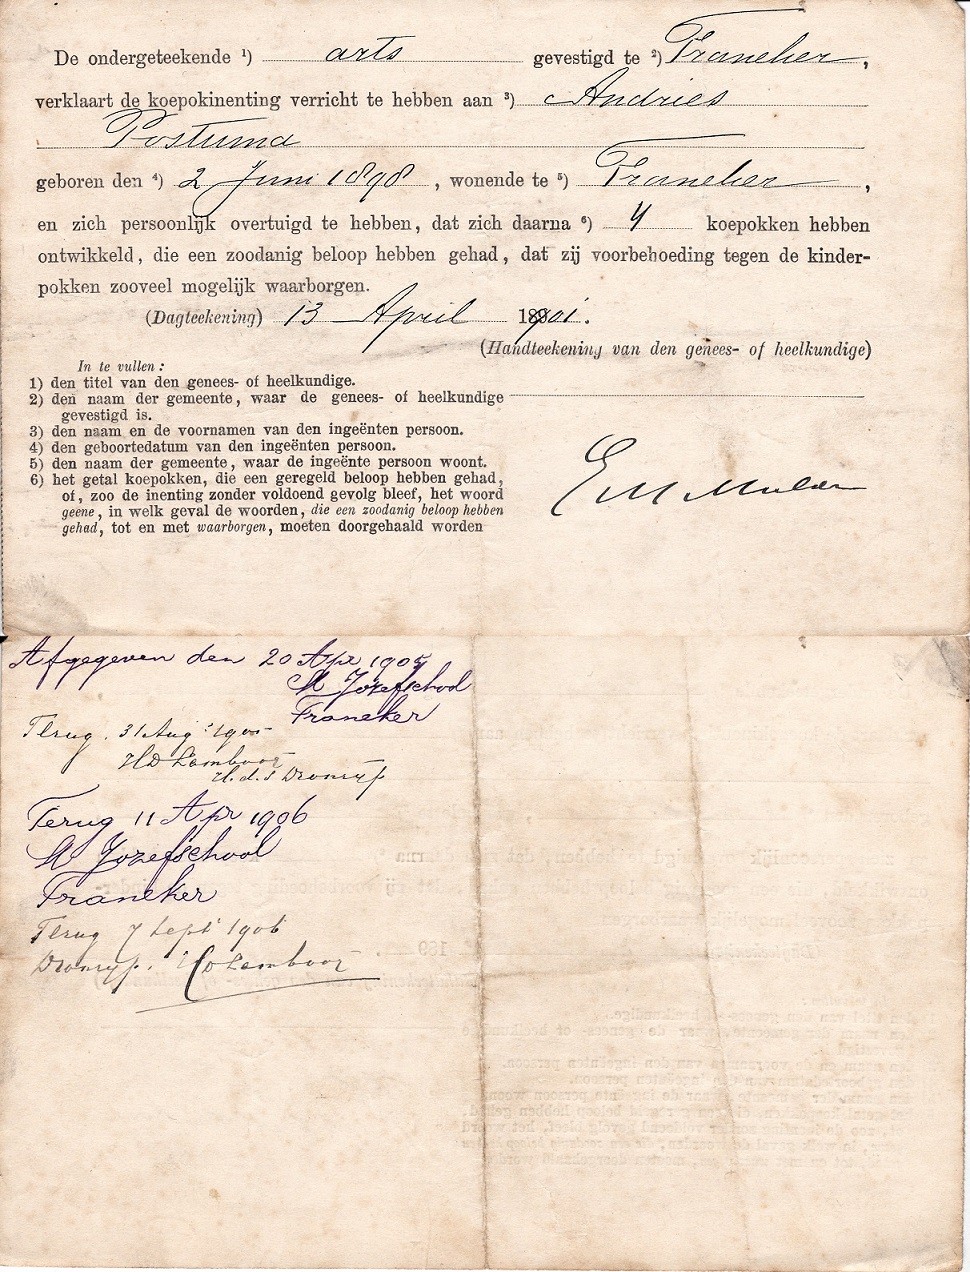 De ondergeteekende ¹) arts gevestigd te ²) Franeker,
verklaart de koepokinenting verricht te hebben aan ³) Andries
Postuma
geboren den ⁴) 2 Juni 1898, wonende te ⁵) Franeker,
en zich persoonlijk overtuigd te hebben, dat zich daarna ⁶) 4 koepokken hebben
ontwikkeld, die een zoodanig beloop hebben gehad, dat zij voorbehoeding tegen de kinder-
pokken zooveel mogelijk waarborgen.
(Dagteekening) 13 April 1901.
(Handteekening van den genees- of heelkundige)
In te vullen:
1) den titel van den genees- of heelkundige.
2) den naam der gemeente, waar de genees- of heelkundige
gevestigd is.
3) den naam en de voornamen van den ingeënten persoon.
4) den geboortedatum van den ingeënten persoon.
5) den naam der gemeente, waar de ingeënte persoon woont.
6) het getal koepokken, die een geregeld beloop hebben gehad,
of, zoo de inenting zonder voldoend gevolg bleef, het woord
geene, in welk geval de woorden, die een zoodanig beloop hebben
gehad, tot en met waarborgen, moeten doorgehaald worden
E M Mulder
Afgegeven den 20 Apr 1905
St Jozefschool
Franeker
Terug. 31 Aug: 1905
HD Lamboor
H. d. s Dronrijp
Terug 11 Apr 1906
St Jozefschool
Franeker
Terug 7 Sept 1906
Dronrijp. HD Lamboor